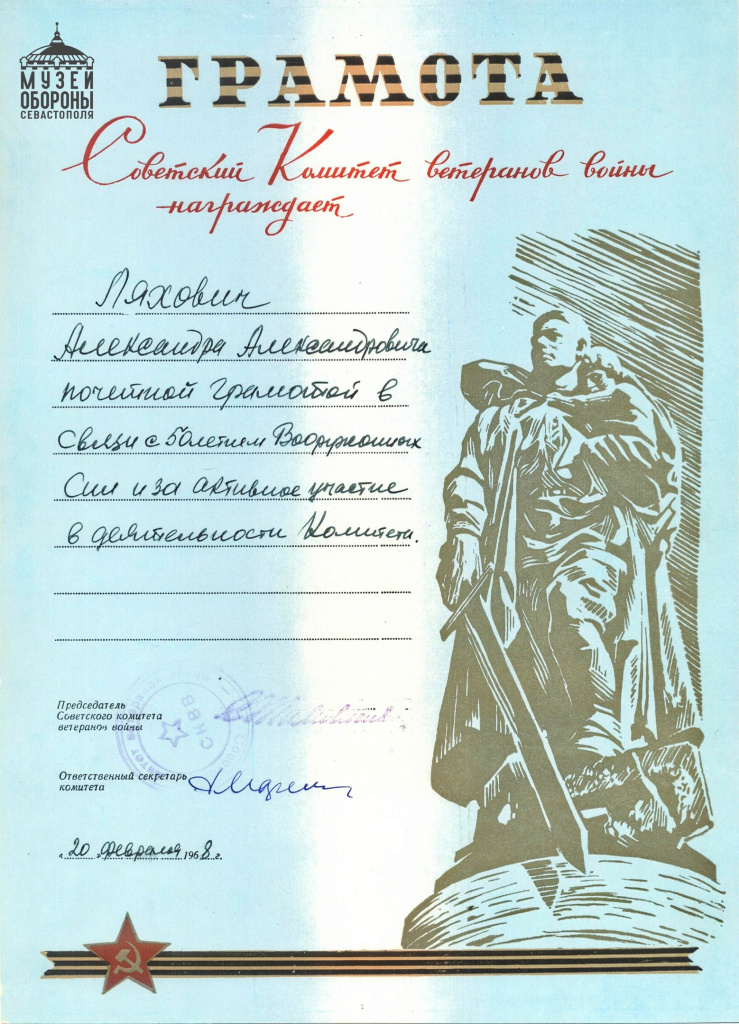 МУЗЕЙ
ОБОРОНЫ
СЕВАСТОПОЛЯ
ГРАМОТА
Советский Комитет ветеранов войны
награждает
Ляхович
Александра Александровича
почетной грамотой в
связи с 50 летием Вооруженных
Сил и за активное участие
в деятельности Комитета.
Председатель
Советского комитета
ветеранов войны
СКВВ
Ответственный секретарь
комитета
«20» февраля 1968 г.